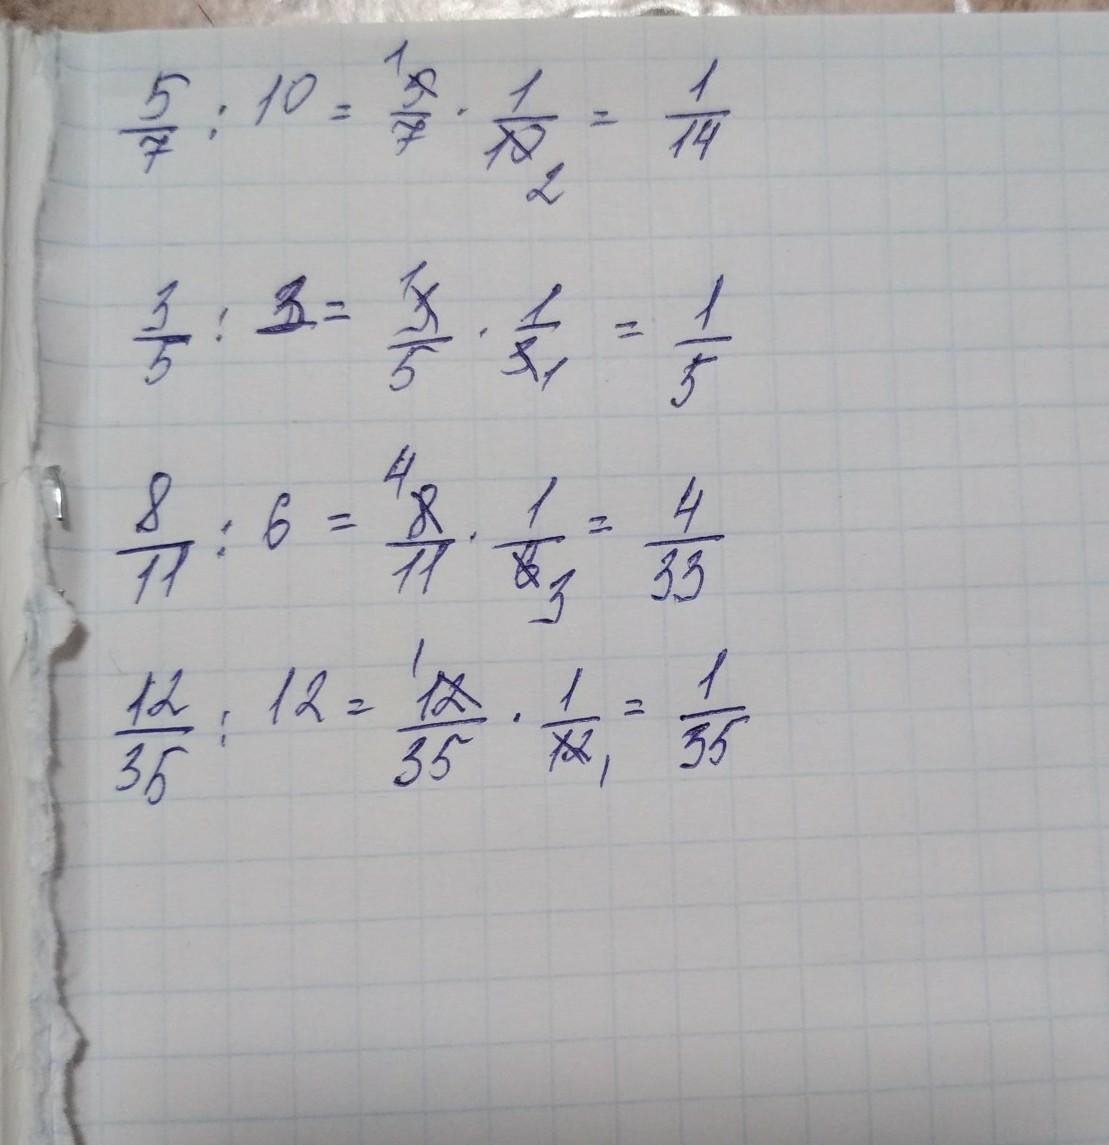 5/7 : 10 = 5/7 1 · 1/10 2 = 1/14
3/5 : 3 = 3/5 1 · 1/3 1 = 1/5
8/11 : 6 = 8/11 4 · 1/6 3 = 4/33
12/35 : 12 = 12/35 1 · 1/12 1 = 1/35